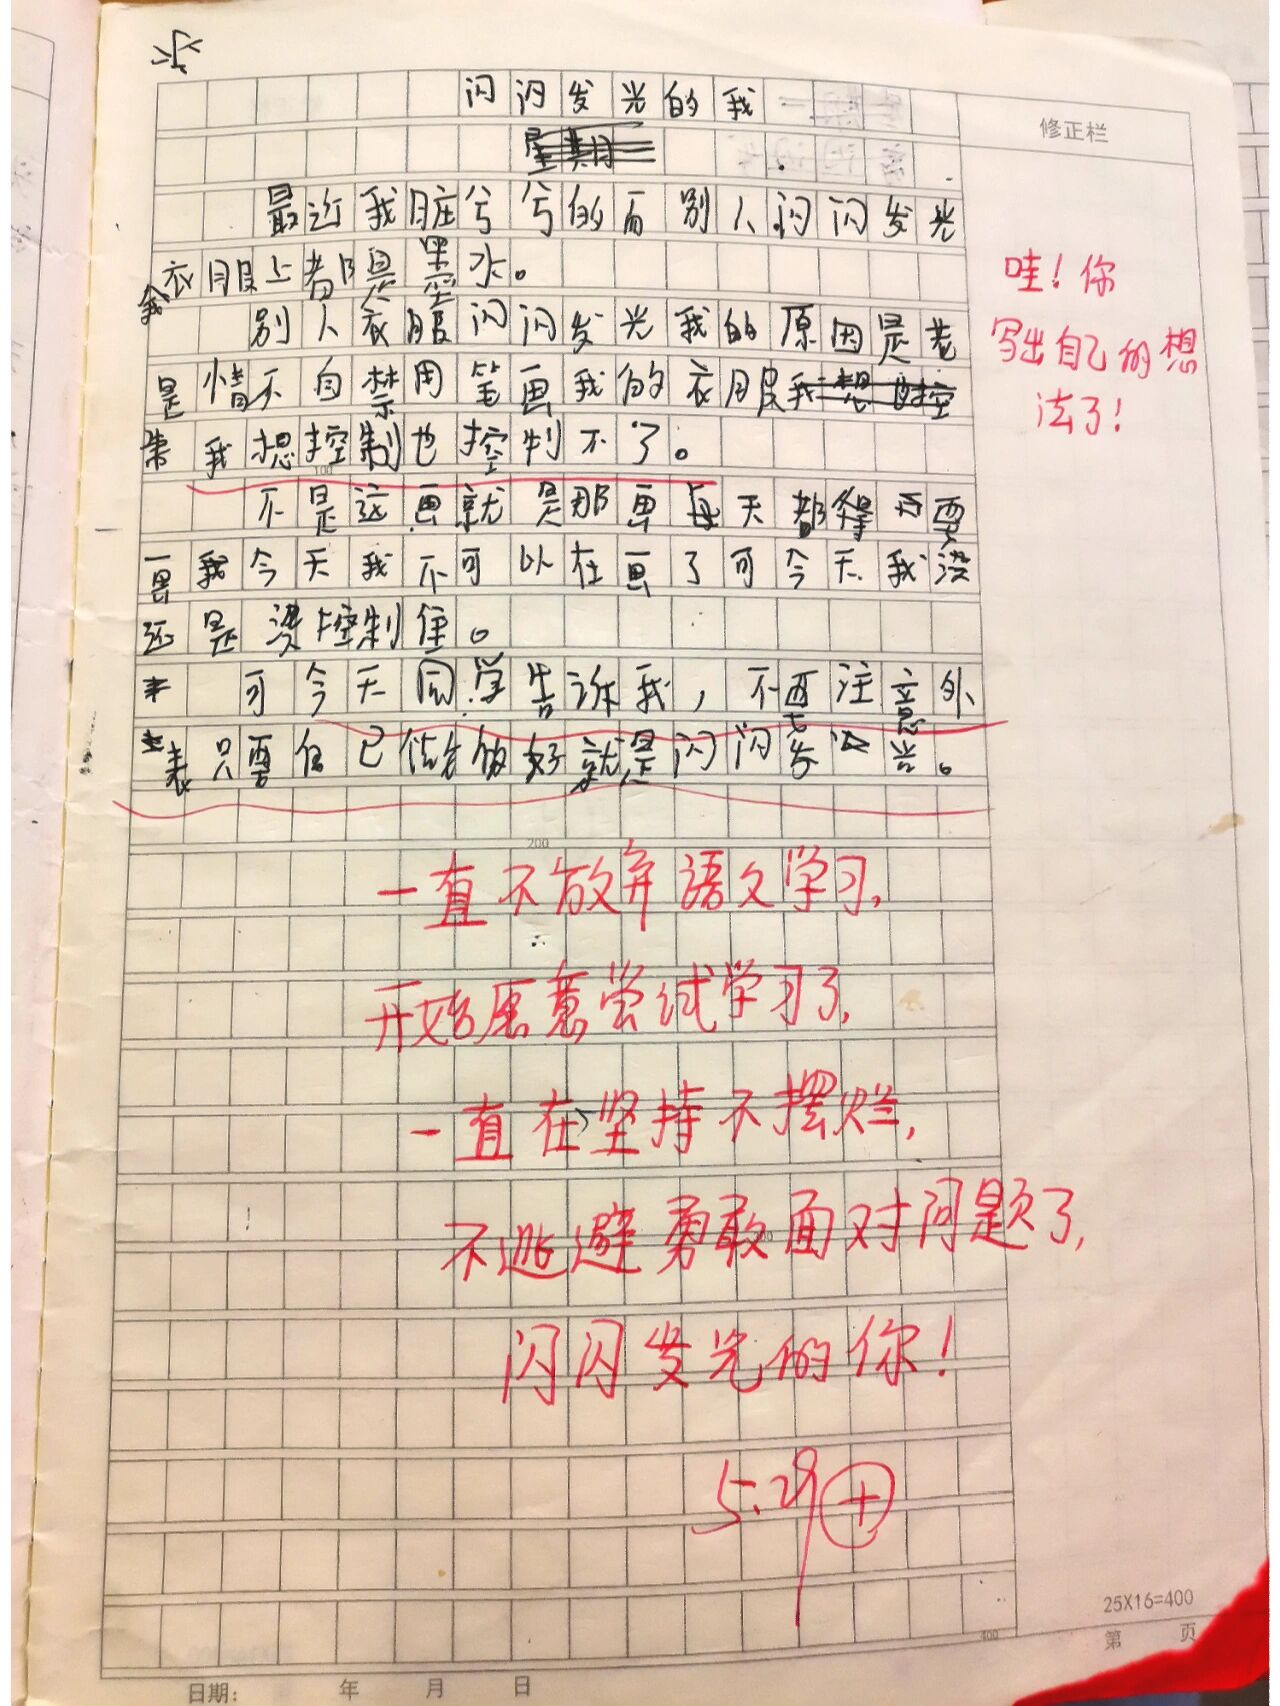 闪闪发光的我
修正栏
最近我脏兮兮的而别人闪闪发光
我衣服上都是墨水。
别人衣服闪闪发光我的原因是老
是情不自禁用笔画我的衣服
我想控制也控制不了。
不是这画就是那画每天都得要
画我今天我不可以在画了可今天我没
还是没控制住。
可今天同学告诉我，不要注意外
表只要自己做的好就是闪闪发光。
哇！你
写出自己的想
法了！
100
200
一直不放弃语文学习，
开始愿意尝试学习了，
一直在坚持不摆烂，
不逃避勇敢面对问题了，
闪闪发光的你！
5.29 +
400
25X16=400
第 页
日期： 年 月 日